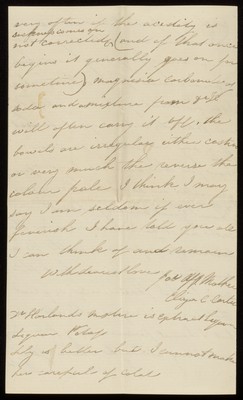 very often if the acidity is
not corrected (and if that once
begins it generally goes on for
sometime) magnesia carbonate of
soda and from
will often carry it off, the
bowels are irregular either costive
or very much the reverse the
colour pale I think I may
say I am seldom if ever
feverish I have told you all
I can think of and remain
With sincere love your Mother
Eliza C
Dr motive is extract
liquor
is better but I cannot make
him careful of cold